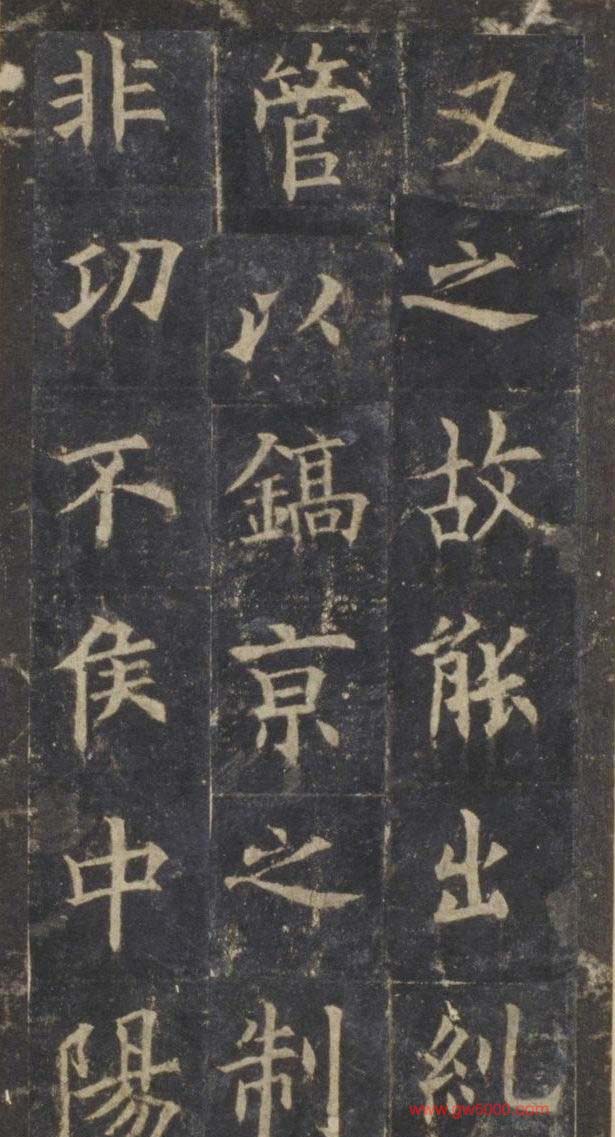 又之故能出糺
管以鎬亰之制
非㓛不侯中陽
www.gw5000.com